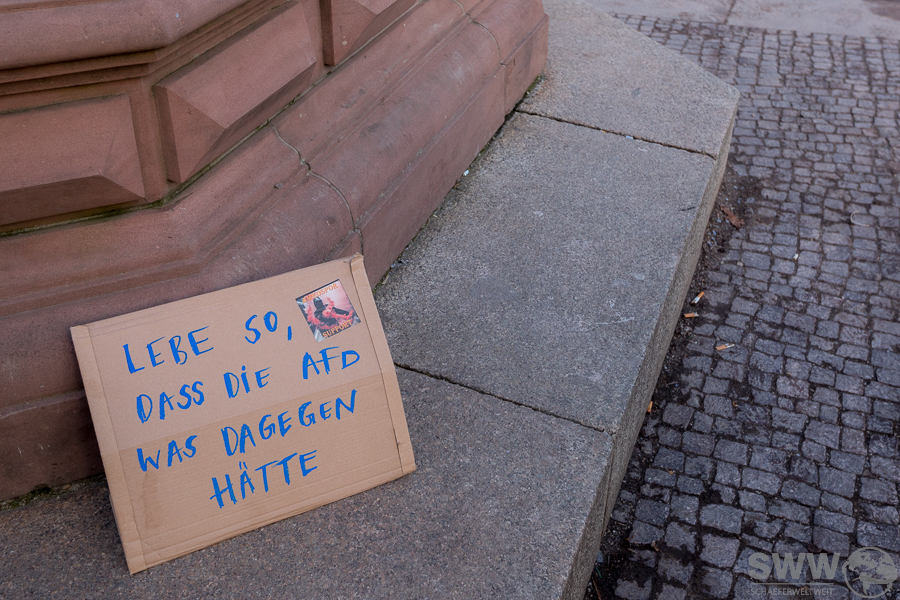 LEBE SO,
DASS DIE AFD
WAS DAGEGEN
HÄTTE
SUPPORT
SWW
SCHAEFERWELTWEIT